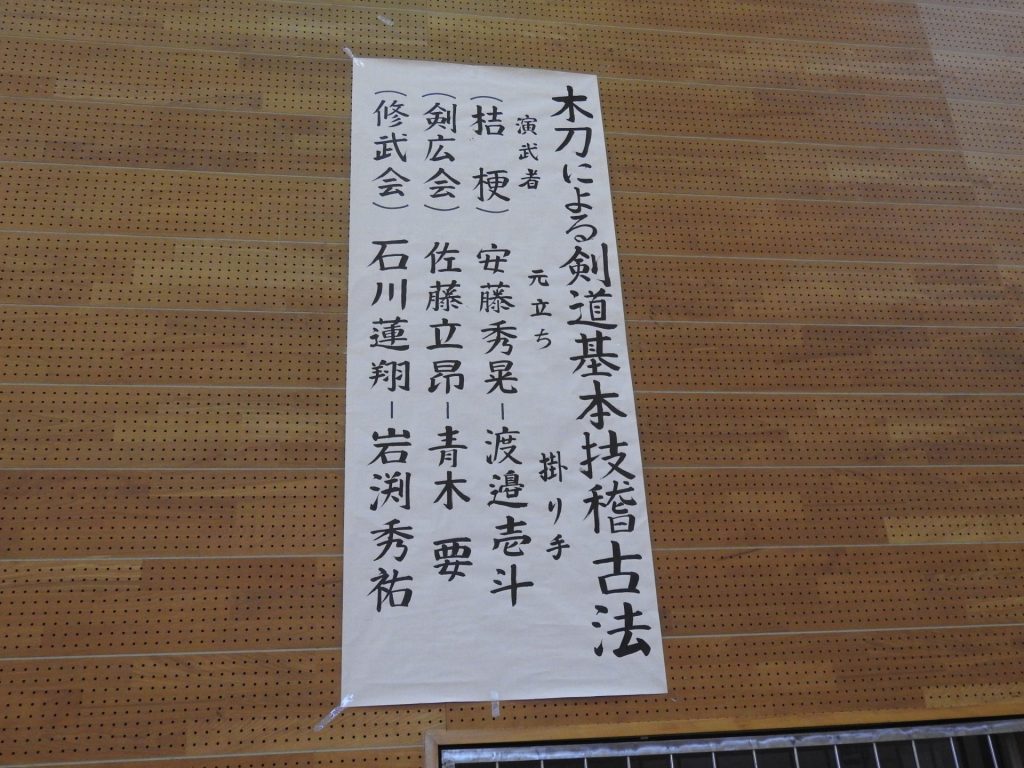 木刀による剣道基本技稽古法
演武者 元立ち 掛り手
(桔 梗) 安藤秀晃-渡邉壱斗
(剣広会) 佐藤立昂-青木 要
(修武会) 石川蓮翔-岩渕秀祐